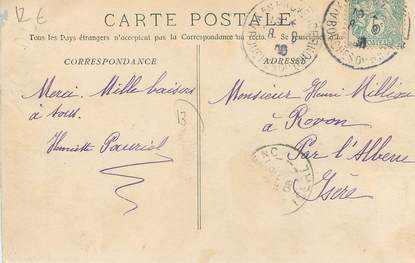 12 €
CARTE POSTALE
Tous les Pays étrangers n'acceptent pas la Correspondance au recto. Se
CORRESPONDANCE
ADRESSE
Merci. Mille baisers
à tous.
Henriette Pauriol
13
Monsieur Henri Milliou
à Rovon
Par l'Albenc
Isère